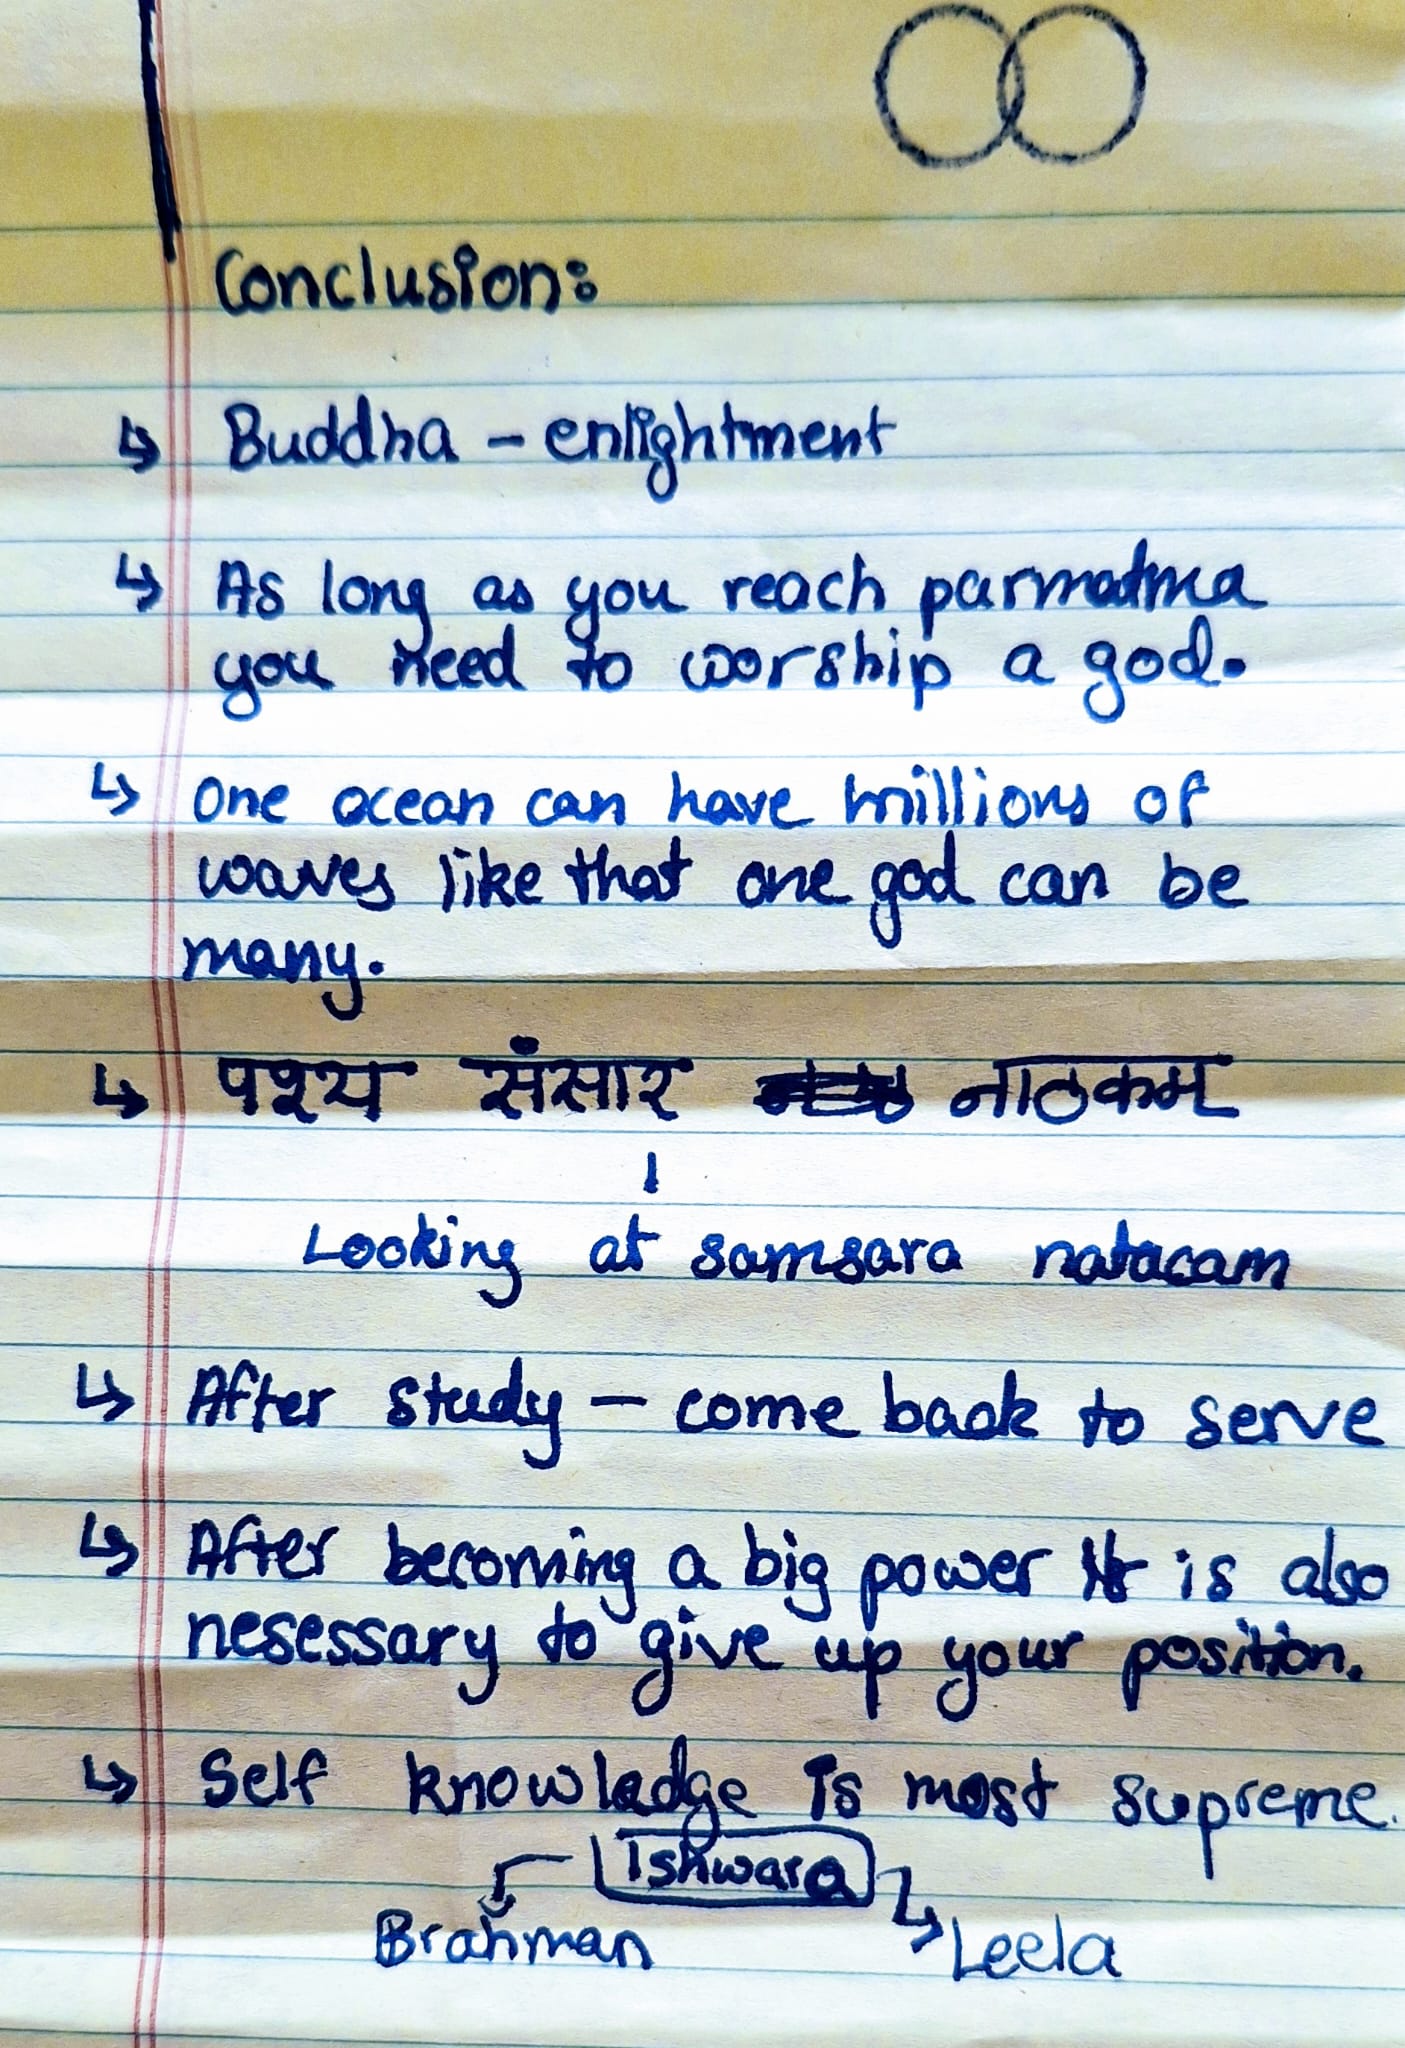 Conclusion:
↳ Buddha – enlightment
↳ As long as you reach parmatma
you need to worship a god.
↳ One ocean can have millions of
waves like that one god can be
many.
↳ पश्य संसार नाठकम्
↓
Looking at samsara natacam
↳ After study – come back to serve
↳ After becoming a big power it is also
nesessary to give up your position.
↳ Self knowladge is most supreme.
Ishwara
Brahman Leela